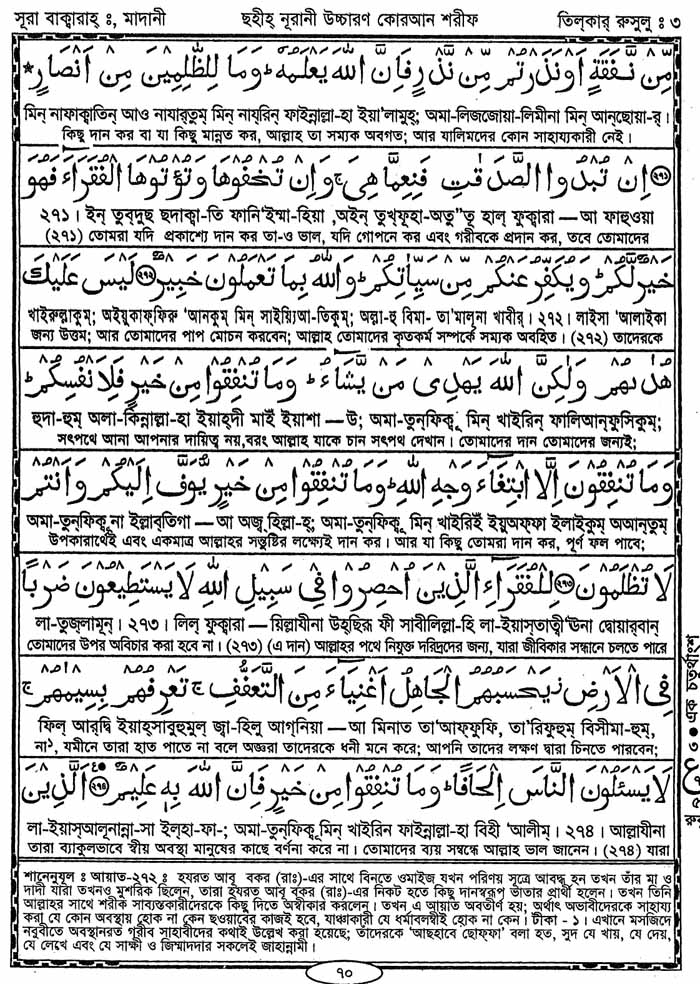 সূরা বাক্বারাহ্ ঃ, মাদানী ছহীহ্ নূরানী উচ্চারণ কোরআন শরীফ তিল্‌কার্ রুসুলু ঃ ৩
مِّنْ نَّفَقَةٍ اَوْ نَذَرْتُمْ مِّنْ نَّذْرٍ فَاِنَّ اللّٰهَ يَعْلَمُهٗ ؕ وَمَا لِلظّٰلِمِيْنَ مِنْ اَنْصَارٍ *
মিন্ নাফাক্বাতিন্ আও নাযার্‌তুম্ মিন্ নায্‌রিন্ ফাইন্নাল্লা-হা ইয়া'লামুহ্; অমা-লিজ্জোয়া-লিমীনা মিন্ আন্‌ছোয়া-র্।
কিছু দান কর বা যা কিছু মান্নত কর, আল্লাহ তা সম্যক অবগত; আর যালিমদের কোন সাহায্যকারী নেই।
﴿٢٧١﴾ اِنْ تُبْدُوا الصَّدَقٰتِ فَنِعِمَّا هِىَ ۚ وَاِنْ تُخْفُوْهَا وَتُؤْتُوْهَا الْفُقَرَآءَ فَهُوَ
২৭১। ইন্ তুব্‌দুছ্ ছদাক্বা-তি ফানি'ইম্মা-হিয়া ,অইন্ তুখ্‌ফূহা-অতু"তূ হাল্ ফুক্বারা — আ ফাহুওয়া
(২৭১) তোমরা যদি প্রকাশ্যে দান কর তা-ও ভাল, যদি গোপনে কর এবং গরীবকে প্রদান কর, তবে তোমাদের
خَيْرٌ لَّكُمْ ؕ وَيُكَفِّرُ عَنْكُمْ مِّنْ سَيِّاٰتِكُمْ ؕ وَاللّٰهُ بِمَا تَعْمَلُوْنَ خَبِيْرٌ ﴿٢٧٢﴾ لَيْسَ عَلَيْكَ
খাইরুল্লাকুম্; অইয়ুকাফ্‌ফিরু 'আন্‌কুম্ মিন্ সাইয়্যিআ-তিকুম্; অল্লা-হু বিমা- তা'মালূনা খাবীর্। ২৭২। লাইসা 'আলাইকা
জন্য উত্তম; আর তোমাদের পাপ মোচন করবেন; আল্লাহ তোমাদের কৃতকর্ম সম্পর্কে সম্যক অবহিত। (২৭২) তাদেরকে
هُدٰىهُمْ وَلٰكِنَّ اللّٰهَ يَهْدِىْ مَنْ يَّشَآءُ ؕ وَمَا تُنْفِقُوْا مِنْ خَيْرٍ فَلِاَنْفُسِكُمْ ؕ
হুদা-হুম্ অলা-কিন্নাল্লা-হা ইয়াহ্‌দী মাইঁ ইয়াশা — উ; অমা-তুন্‌ফিক্বূ মিন্ খাইরিন্ ফালিআন্‌ফুসিকুম্;
সৎপথে আনা আপনার দায়িত্ব নয়,বরং আল্লাহ যাকে চান সৎপথ দেখান। তোমাদের দান তোমাদের জন্যই;
وَمَا تُنْفِقُوْنَ اِلَّا ابْتِغَآءَ وَجْهِ اللّٰهِ ؕ وَمَا تُنْفِقُوْا مِنْ خَيْرٍ يُّوَفَّ اِلَيْكُمْ وَاَنْتُمْ
অমা-তুন্‌ফিক্বূনা ইল্লাব্‌তিগা — আ অজ্‌হিল্লা-হ্; অমা-তুন্‌ফিক্বূ মিন্ খাইরিইঁ ইয়ুঅফ্‌ফা ইলাইকুম্ অআন্‌তুম্
উপকারার্থেই এবং একমাত্র আল্লাহর সন্তুষ্টির লক্ষ্যেই দান কর। আর যা কিছু তোমরা দান কর, পূর্ণ ফল পাবে;
لَا تُظْلَمُوْنَ ﴿٢٧٣﴾ لِلْفُقَرَآءِ الَّذِيْنَ اُحْصِرُوْا فِىْ سَبِيْلِ اللّٰهِ لَا يَسْتَطِيْعُوْنَ ضَرْبًا
লা-তুজ্‌লামূন্। ২৭৩। লিল্ ফুক্বারা — য়িল্লাযীনা উহ্‌ছিরূ ফী সাবীলিল্লা-হি লা-ইয়াস্‌তাত্বী'ঊনা দ্বোয়ার্‌বান্
তোমাদের উপর অবিচার করা হবে না। (২৭৩) (এ দান) আল্লাহর পথে নিযুক্ত দরিদ্রদের জন্য, যারা জীবিকার সন্ধানে চলতে পারে
فِى الْاَرْضِ ز يَحْسَبُهُمُ الْجَاهِلُ اَغْنِيَآءَ مِنَ التَّعَفُّفِ ۚ تَعْرِفُهُمْ بِسِيْمٰهُمْ ۚ
ফিল্ আর্‌দ্বি ইয়াহ্‌সাবুহুমুল্ জ্বা-হিলু আগ্‌নিয়া — আ মিনাত্ তা'আফ্‌ফুফি, তা'রিফুহুম্ বিসীমা-হুম্,
না১, যমীনে তারা হাত পাতে না বলে অজ্ঞরা তাদেরকে ধনী মনে করে; আপনি তাদের লক্ষণ দ্বারা চিনতে পারবেন;
لَا يَسْئَلُوْنَ النَّاسَ اِلْحَافًا ؕ وَمَا تُنْفِقُوْا مِنْ خَيْرٍ فَاِنَّ اللّٰهَ بِهٖ عَلِيْمٌ ﴿٢٧٤﴾ اَلَّذِيْنَ
লা-ইয়াস্‌আলূনান্না-সা ইল্‌হা-ফা-; অমা-তুন্‌ফিক্বূ মিন্ খাইরিন্ ফাইন্নাল্লা-হা বিহী 'আলীম্। ২৭৪। আল্লাযীনা
তারা ব্যাকুলভাবে স্বীয় অবস্থা মানুষের কাছে বর্ণনা করে না। তোমাদের ব্যয় সম্বন্ধে আল্লাহ ভাল জানেন। (২৭৪) যারা
শানেনুযূল ঃ আয়াত-২৭২ ঃ হযরত আবূ বকর (রাঃ)-এর সাথে বিন্‌তে ওমাইজ যখন পরিণয় সূত্রে আবদ্ধ হন তখন তাঁর মা ও
দাদী যারা তখনও মুশরিক ছিলেন, তারা হযরত আবূ বকর (রাঃ)-এর নিকট হতে কিছু দানস্বরূপ ভাতার প্রার্থী হলেন। তখন তিনি
আল্লাহর সাথে শরীক সাব্যস্তকারীদেরকে কিছু দিতে অস্বীকার করলেন। তখন এ আয়াত অবতীর্ণ হয়; অর্থাৎ অভাবীদেরকে সাহায্য
করা যে কোন অবস্থায় হোক না কেন ছওয়াবের কাজই হবে, যাঞ্চাকারী যে ধর্মাবলম্বীই হোক না কেন। টীকা - ১। এখানে মসজিদে
নববীতে অবস্থানরত গরীব সাহাবীদের কথাই উল্লেখ করা হয়েছে; তাদেরকে 'আছহাবে ছোফ্‌ফা' বলা হত, সুদ যে খায়, যে দেয়,
যে লেখে এবং যে সাক্ষী ও জিম্মাদদার সকলেই জাহান্নামী।
৭০